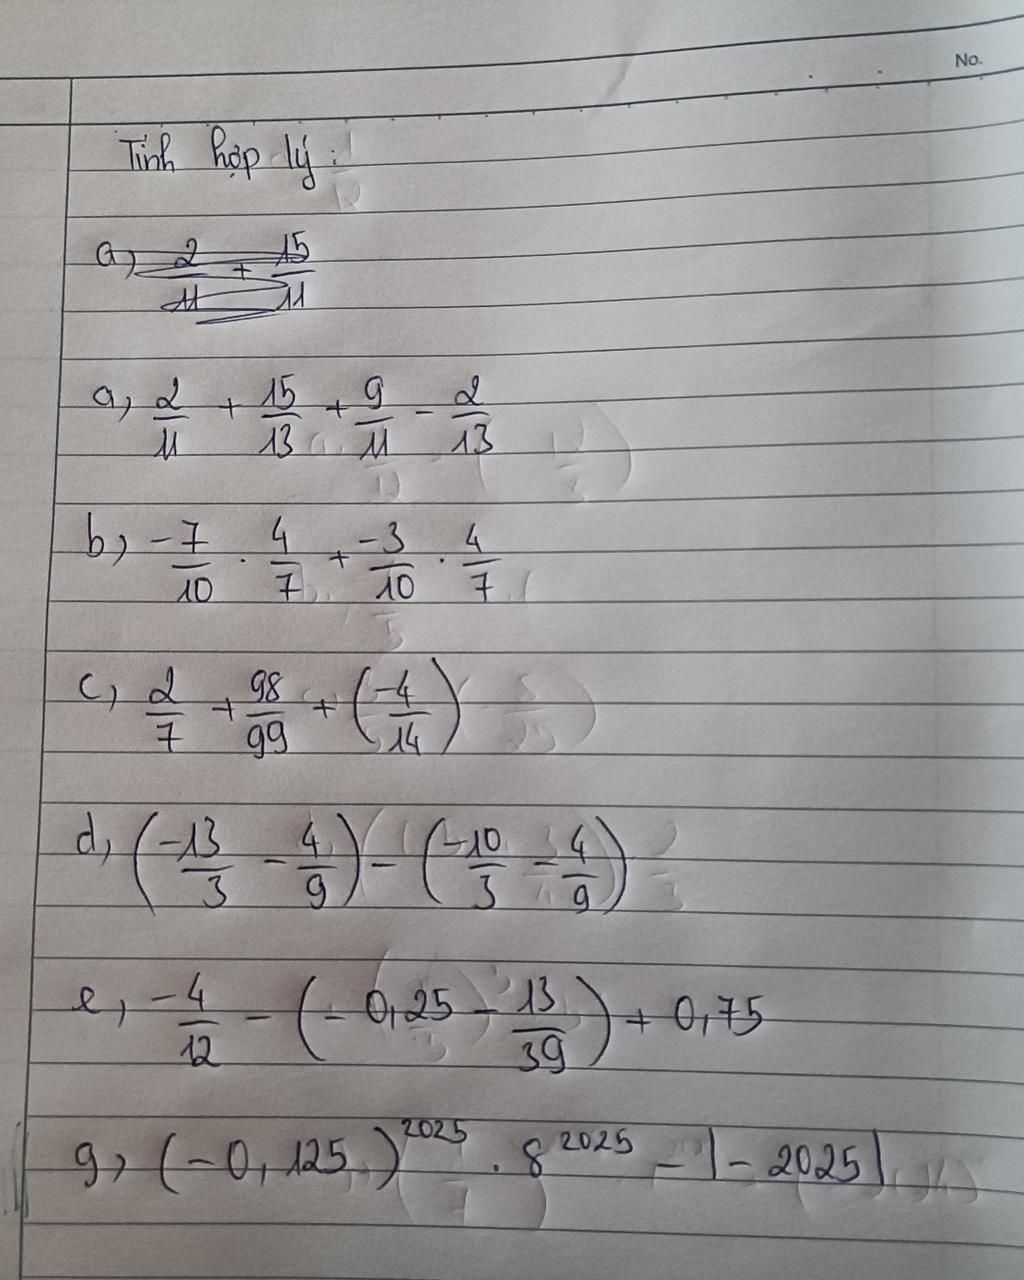 No.
Tính hợp lý :
a) 2/11 + 15/11
a) 2/11 + 15/13 + 9/11 - 2/13
b) -7/10 . 4/7 + -3/10 . 4/7
c) 2/7 + 98/99 + (-4/14)
d) (-13/3 - 4/9) - (-10/3 - 4/9)
e) -4/12 - (-0,25 - 13/39) + 0,75
g) (-0,125)^2025 . 8^2025 - |-2025|